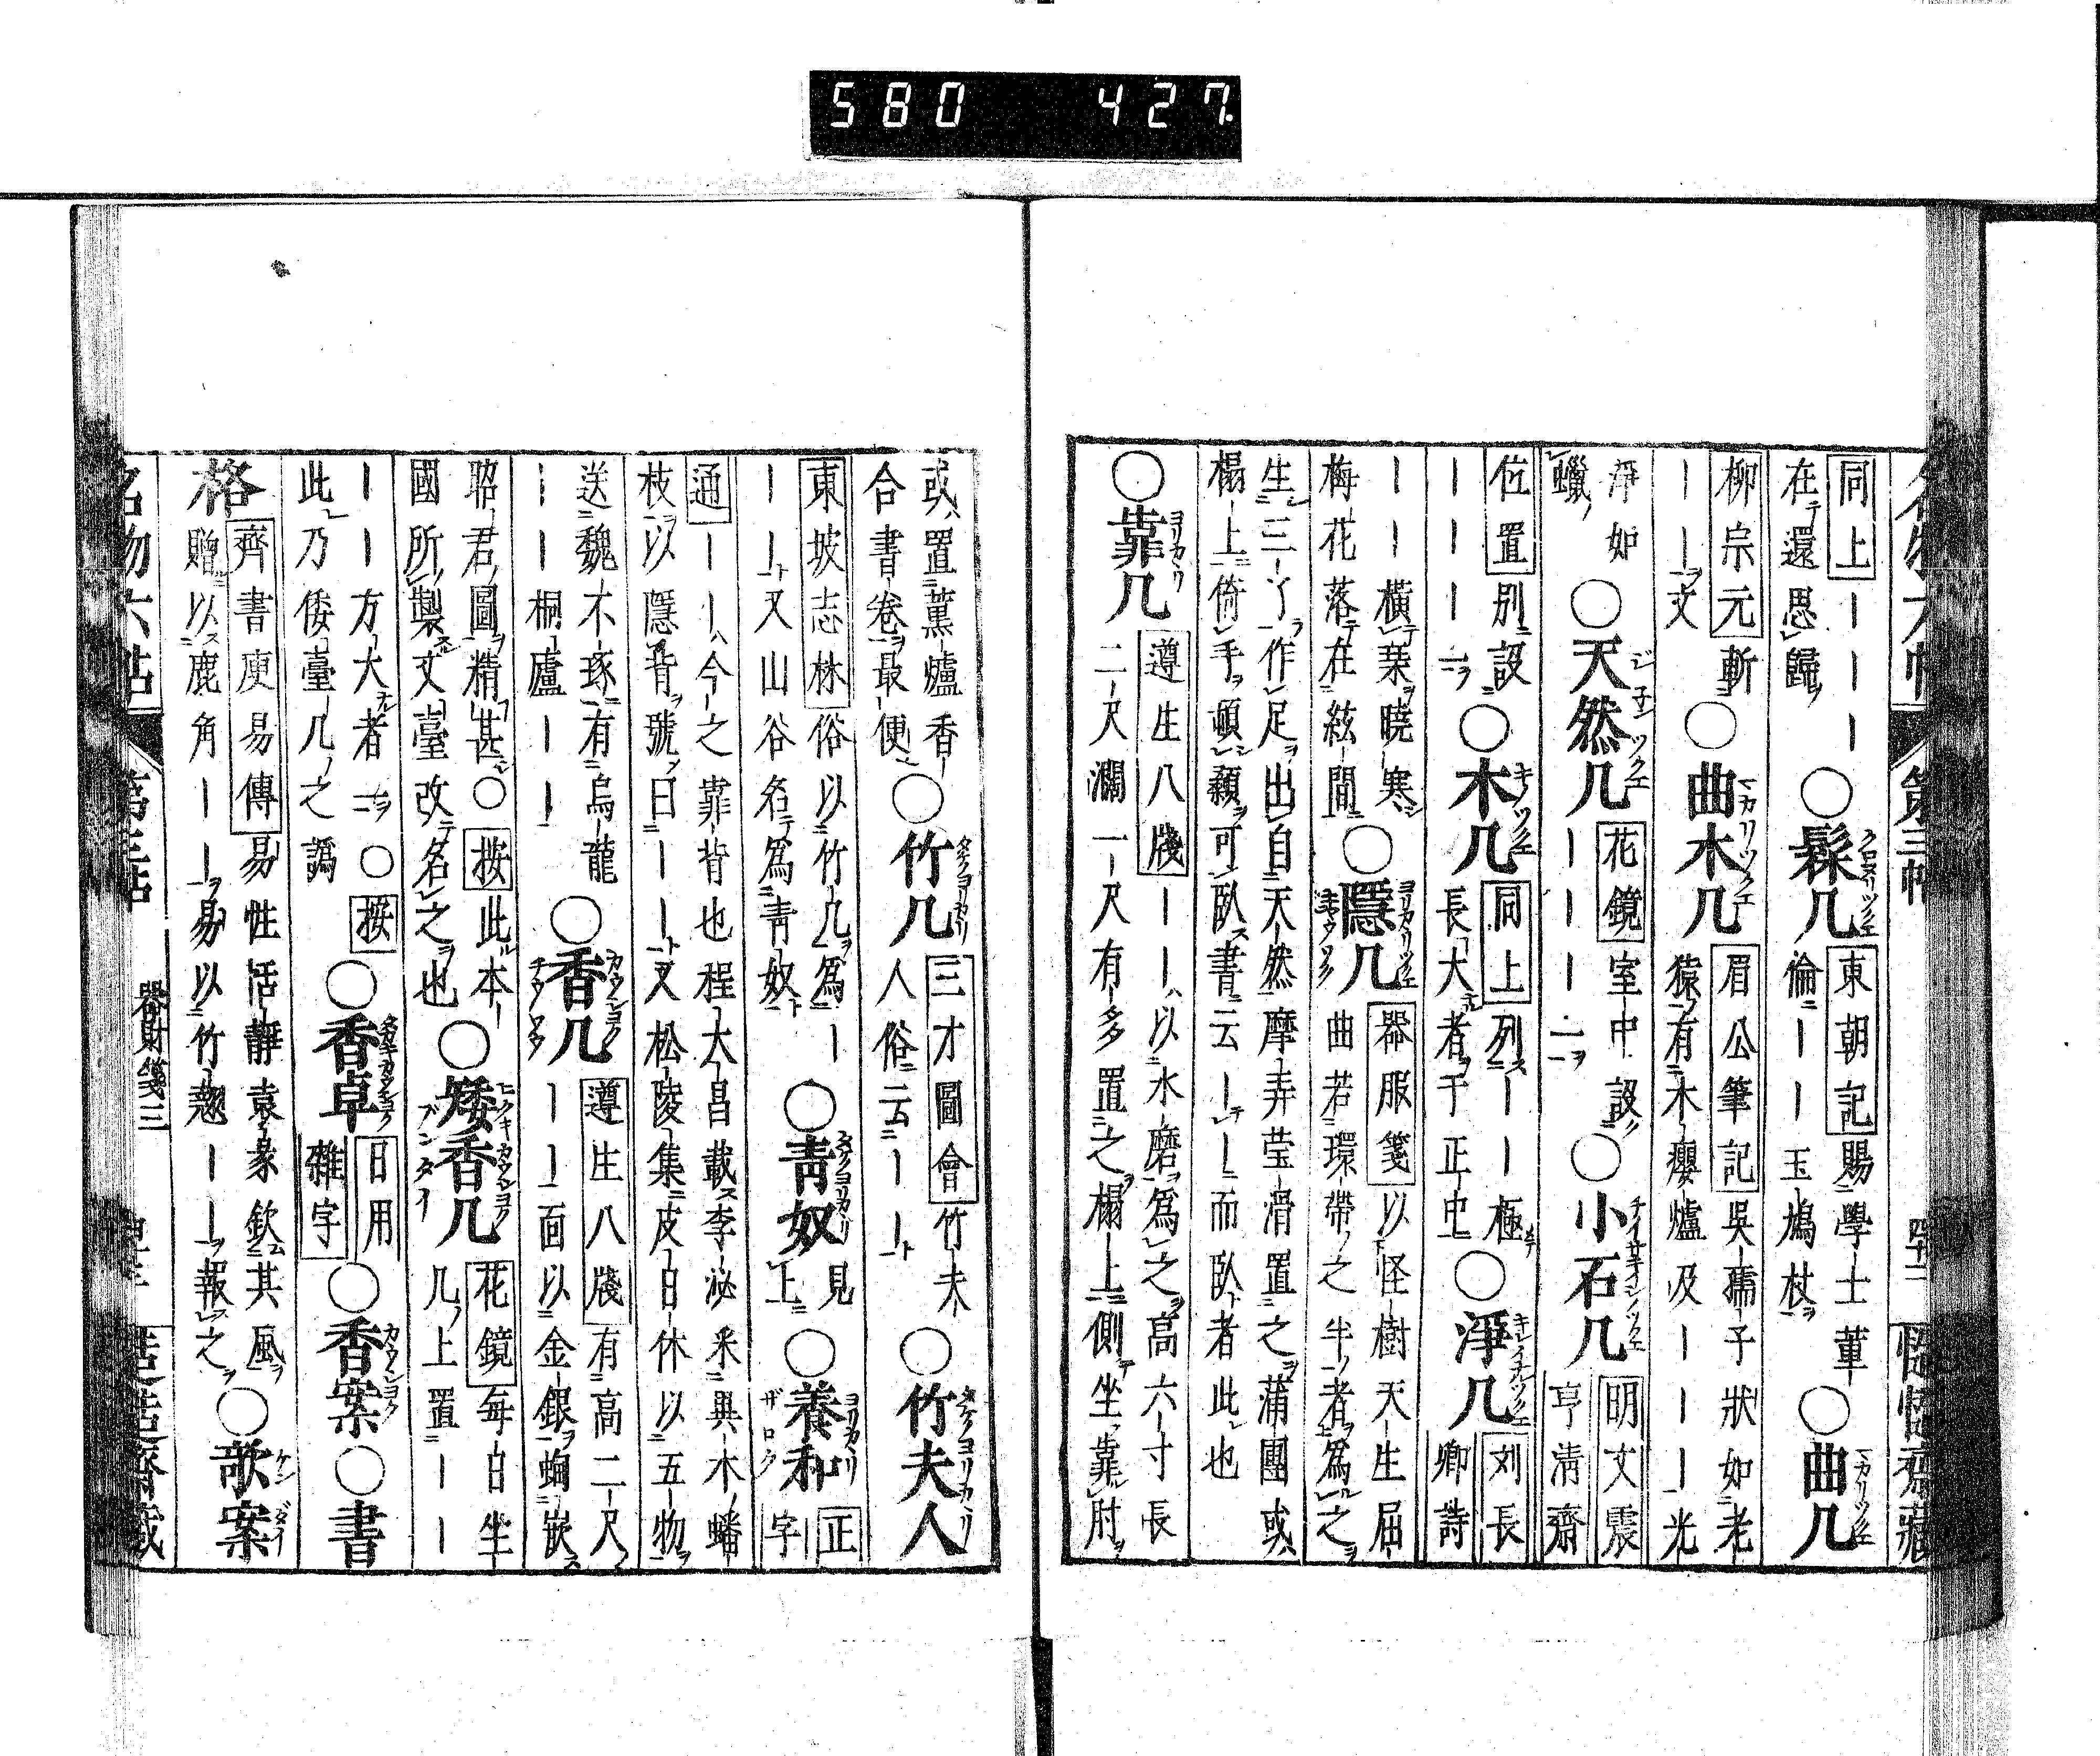 580 427.
名物六帖 第三帖 四十二
同上｜｜｜｜
在還思歸
○髹几
東朝記賜學士董
倫｜｜玉鳩杖
○曲几
柳宗元斬
｜｜｜文
○曲木几
眉公筆記吳孺子狀如老
猿有木癭爐及｜｜｜光
淨如
蠟
○天然几
花鏡室中設
｜｜｜｜一
○小石几
明文震
亨清齋
位置別設
｜｜｜｜一
○木几
同上列｜｜極
長大者于正中
○淨几
刘長
卿詩
｜｜橫琴曉寒
梅花落在絃間
○隱几
器服箋以怪樹天生屈
曲若環帶之半者爲之
生三丫作足出自天然摩弄莹滑置之蒲團或
榻上倚手頓顙可臥書云｜｜而臥者此也
○靠几
遵生八牋｜｜以水磨爲之高六寸長
二尺濶一尺有多置之榻上側坐靠肘
或置薰爐香
合書卷最便
○竹几
三才圖會竹夫
人俗云｜｜
○竹夫人
東坡志林俗以竹几爲｜
｜｜又山谷名爲青奴
○青奴
見
上
○養和
正
字
通｜｜今之靠背也程大昌載李泌采異木蟠
枝以隱背號曰｜｜又松陵集皮日休以五物
送魏不琢有烏龍
｜｜桐廬｜｜
○香几
遵生八牋有高二尺
｜｜｜面以金銀蜔嵌
昭君圖精甚○按此本
國所製文臺改名之也
○矮香几
花鏡每日坐
几上置｜｜
｜｜方大者一○按
此乃倭臺几之譌
○香卓
日用
雜字
○香案○書
格
齊書庾易傳易性恬靜袁彖欽其風
贈以鹿角｜｜易以竹翹｜｜報之
○欹案
名物六帖 第三帖 器財箋三